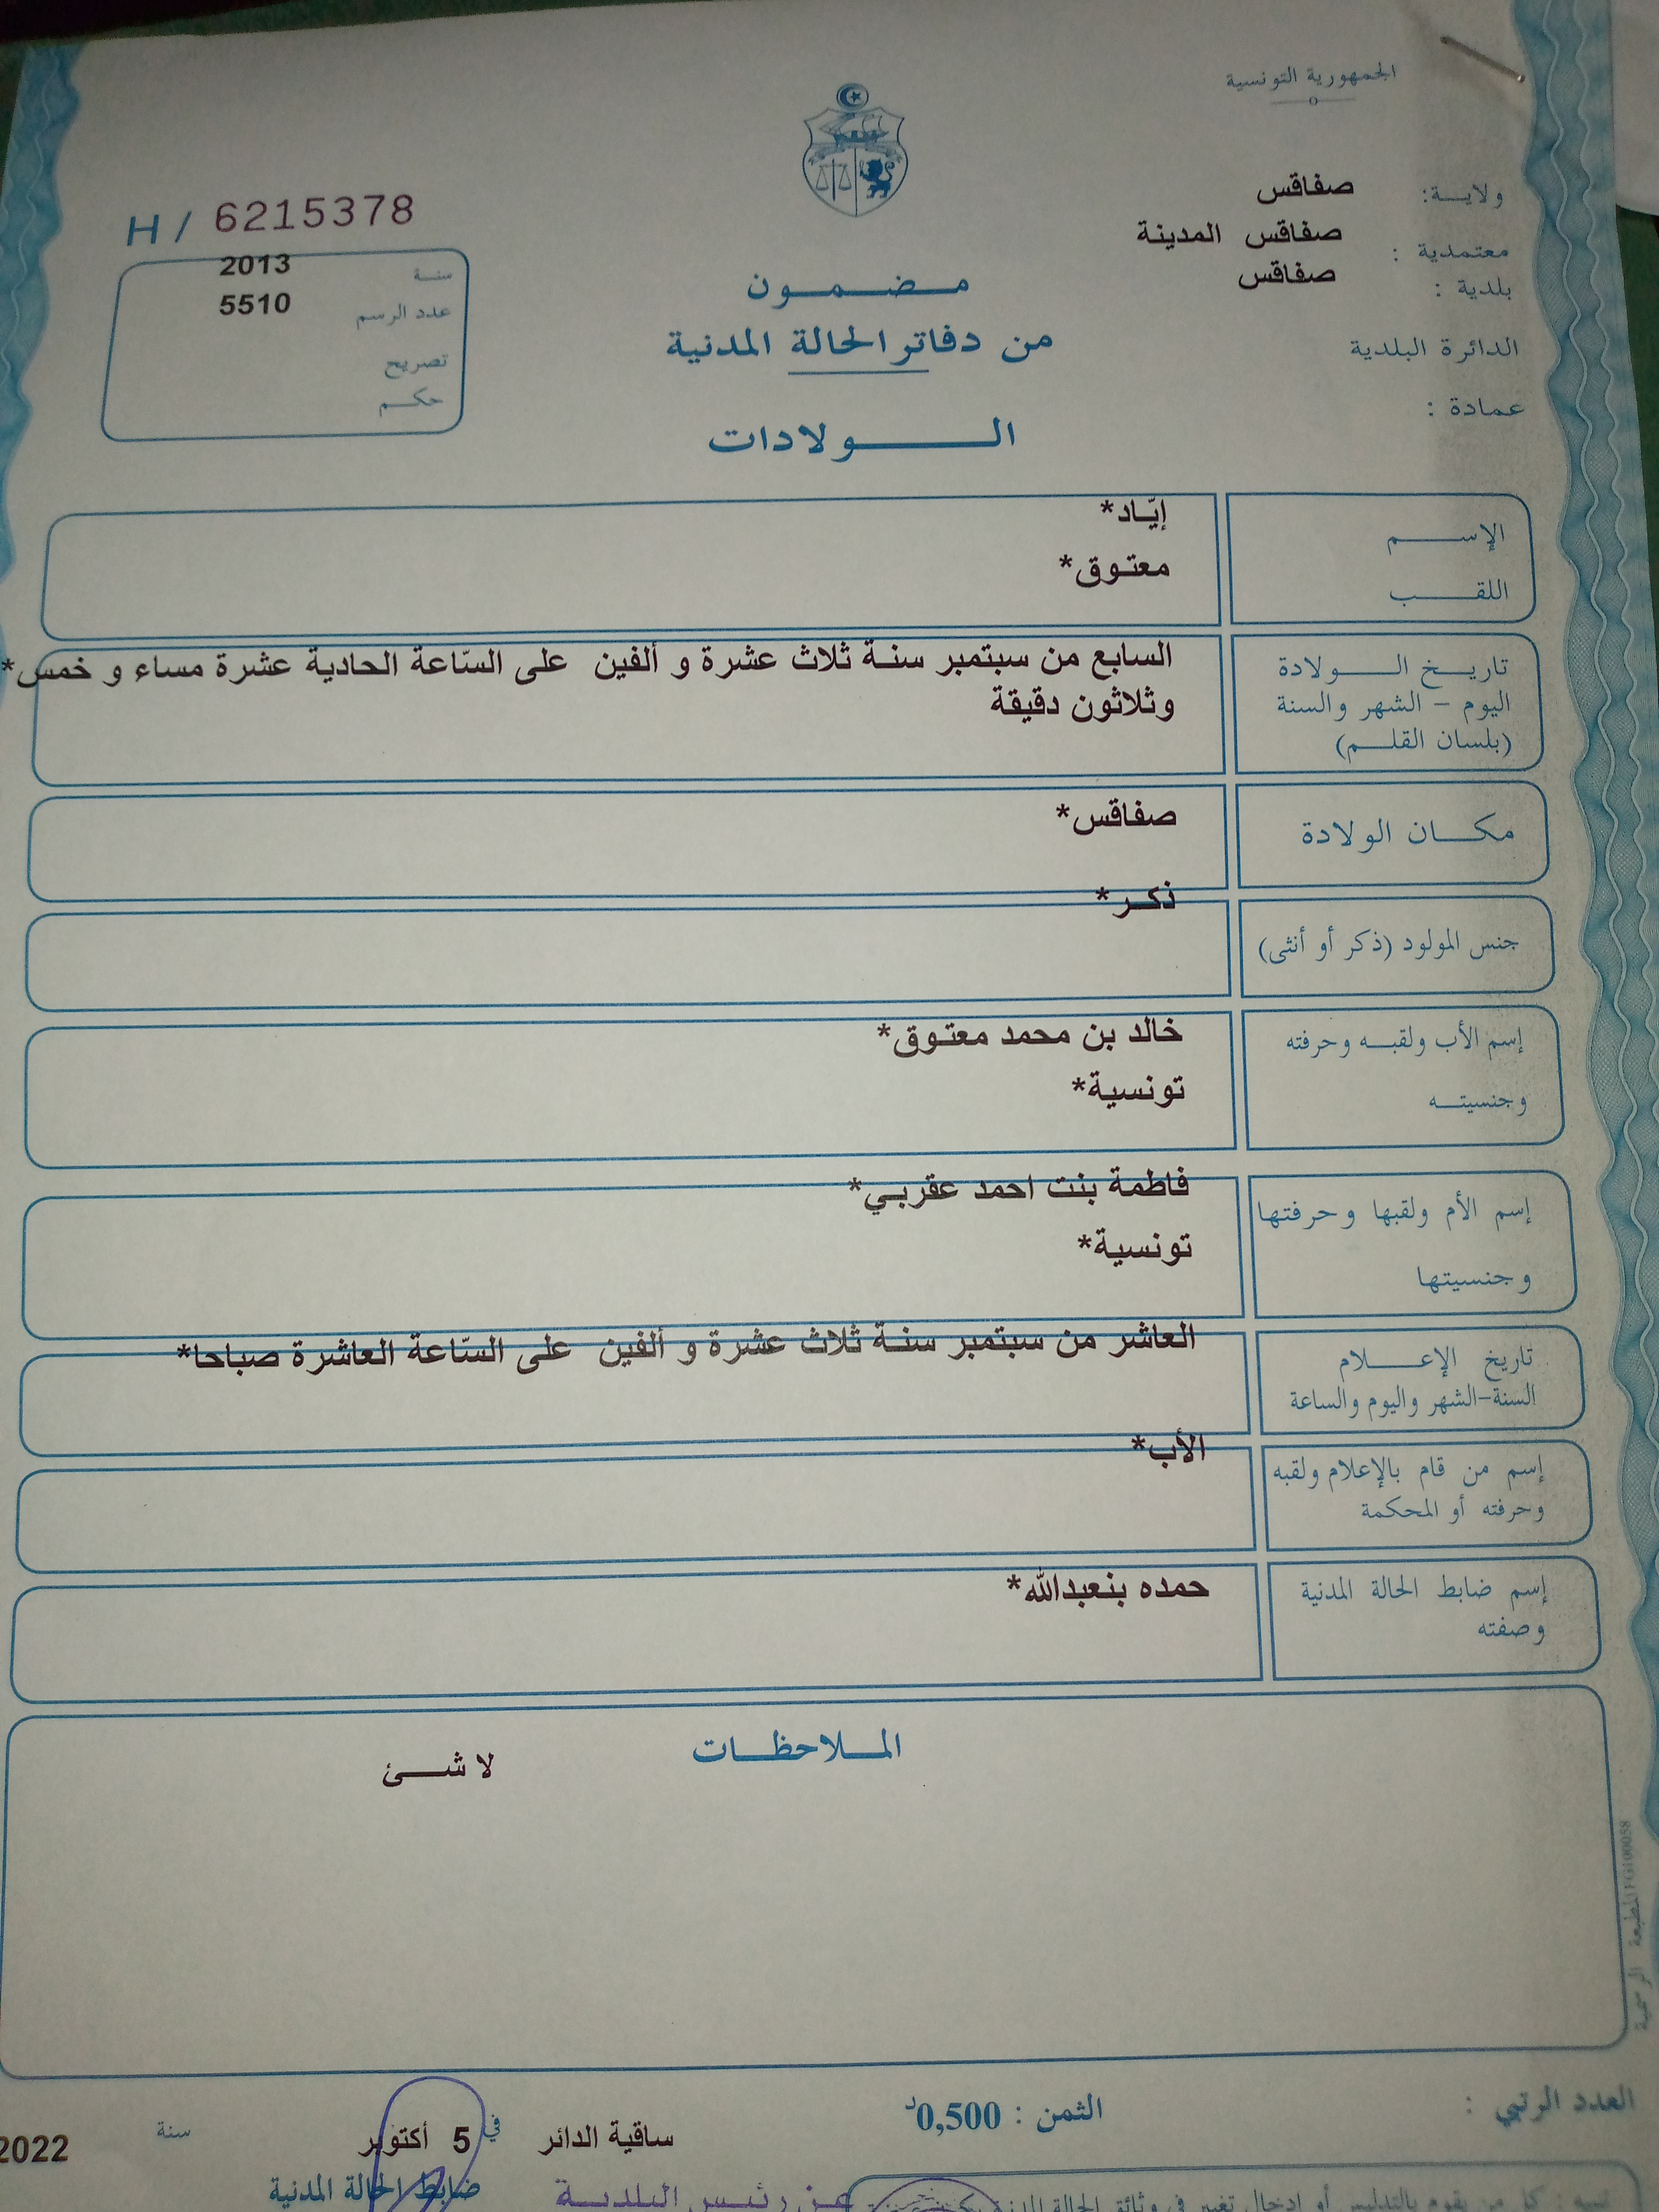 الجمهورية التونسية
ولاية: صفاقس
معتمدية : صفاقس المدينة
بلدية : صفاقس
الدائرة البلدية
عمادة :
H / 6215378
سنة 2013
عدد الرسم 5510
تصريح
حكم
مضمون
من دفاتر الحالة المدنية
الولادات
الإسم إيّاد*
اللقب معتوق*
تاريخ الولادة
اليوم - الشهر والسنة
(بلسان القلم)
السابع من سبتمبر سنة ثلاث عشرة و ألفين على السّاعة الحادية عشرة مساء و خمس*
وثلاثون دقيقة
مكان الولادة صفاقس*
جنس المولود (ذكر أو أنثى) ذكر*
إسم الأب ولقبه وحرفته خالد بن محمد معتوق*
وجنسيته تونسية*
إسم الأم ولقبها وحرفتها فاطمة بنت احمد عقربي*
وجنسيتها تونسية*
تاريخ الإعلام
السنة-الشهر واليوم والساعة
العاشر من سبتمبر سنة ثلاث عشرة و ألفين على السّاعة العاشرة صباحا*
إسم من قام بالإعلام ولقبه
وحرفته أو المحكمة
الأب*
إسم ضابط الحالة المدنية
وصفته
حمده بنعبدالله*
الملاحظات
لا شئ
المطبعة الرسمية
العدد الرتبي :
الثمن : 0,500د
ساقية الدائر في 5 أكتوبر سنة 2022
ضابط الحالة المدنية
عن رئيس البلدية